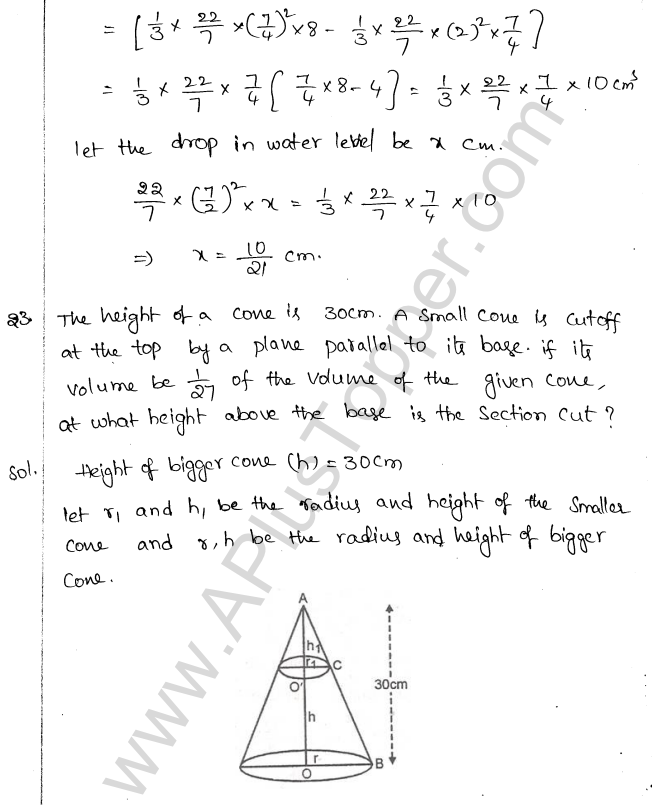 = [ 1/3 × 22/7 × (7/4)² × 8 - 1/3 × 22/7 × (2)² × 7/4 ]
= 1/3 × 22/7 × 7/4 [ 7/4 × 8 - 4 ] = 1/3 × 22/7 × 7/4 × 10 cm³
let the drop in water level be x cm.
22/7 × (7/2)² × x = 1/3 × 22/7 × 7/4 × 10
=) x = 10/21 cm.
23 The height of a cone is 30cm. A small cone is cutoff
at the top by a plane parallel to its base. if its
volume be 1/27 of the volume of the given cone,
at what height above the base is the section cut?
Sol. Height of bigger cone (h) = 30cm
let r₁ and h₁ be the radius and height of the smaller
cone and r, h be the radius and height of bigger
cone.
A
h₁
r₁ C
O'
30cm
h
r
O
B
www.APlusTopper.com